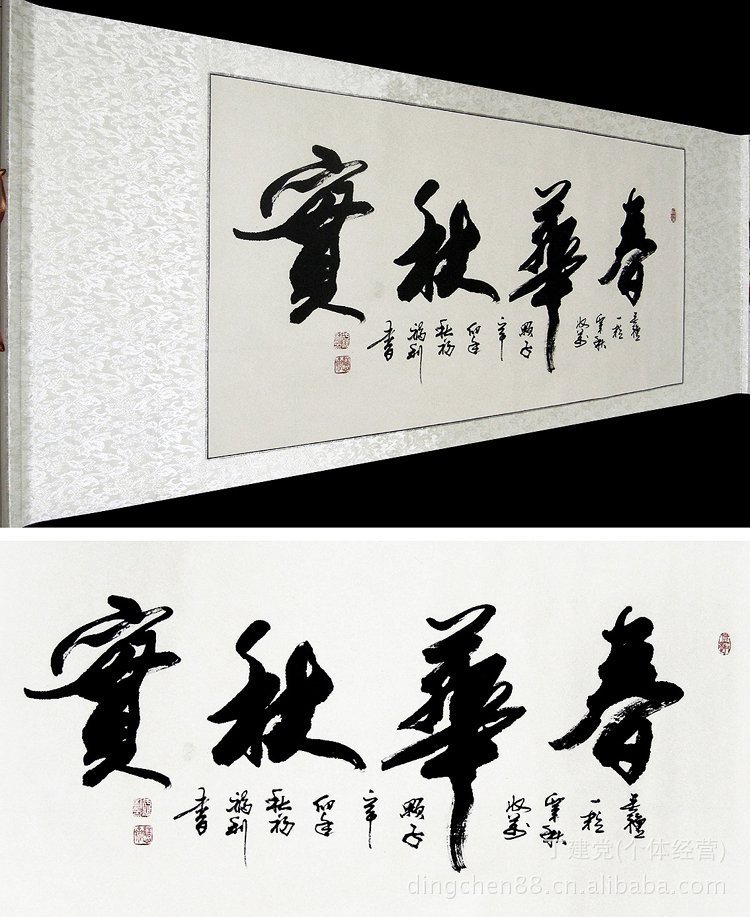 春華秋實
春種
一粒
粟秋
收萬
顆子
辛
卯年
書
春華秋實
春種
一粒
粟秋
收萬
顆子
辛
卯年
書
丁建党(个体经营)
dingchen88.cn.alibaba.com